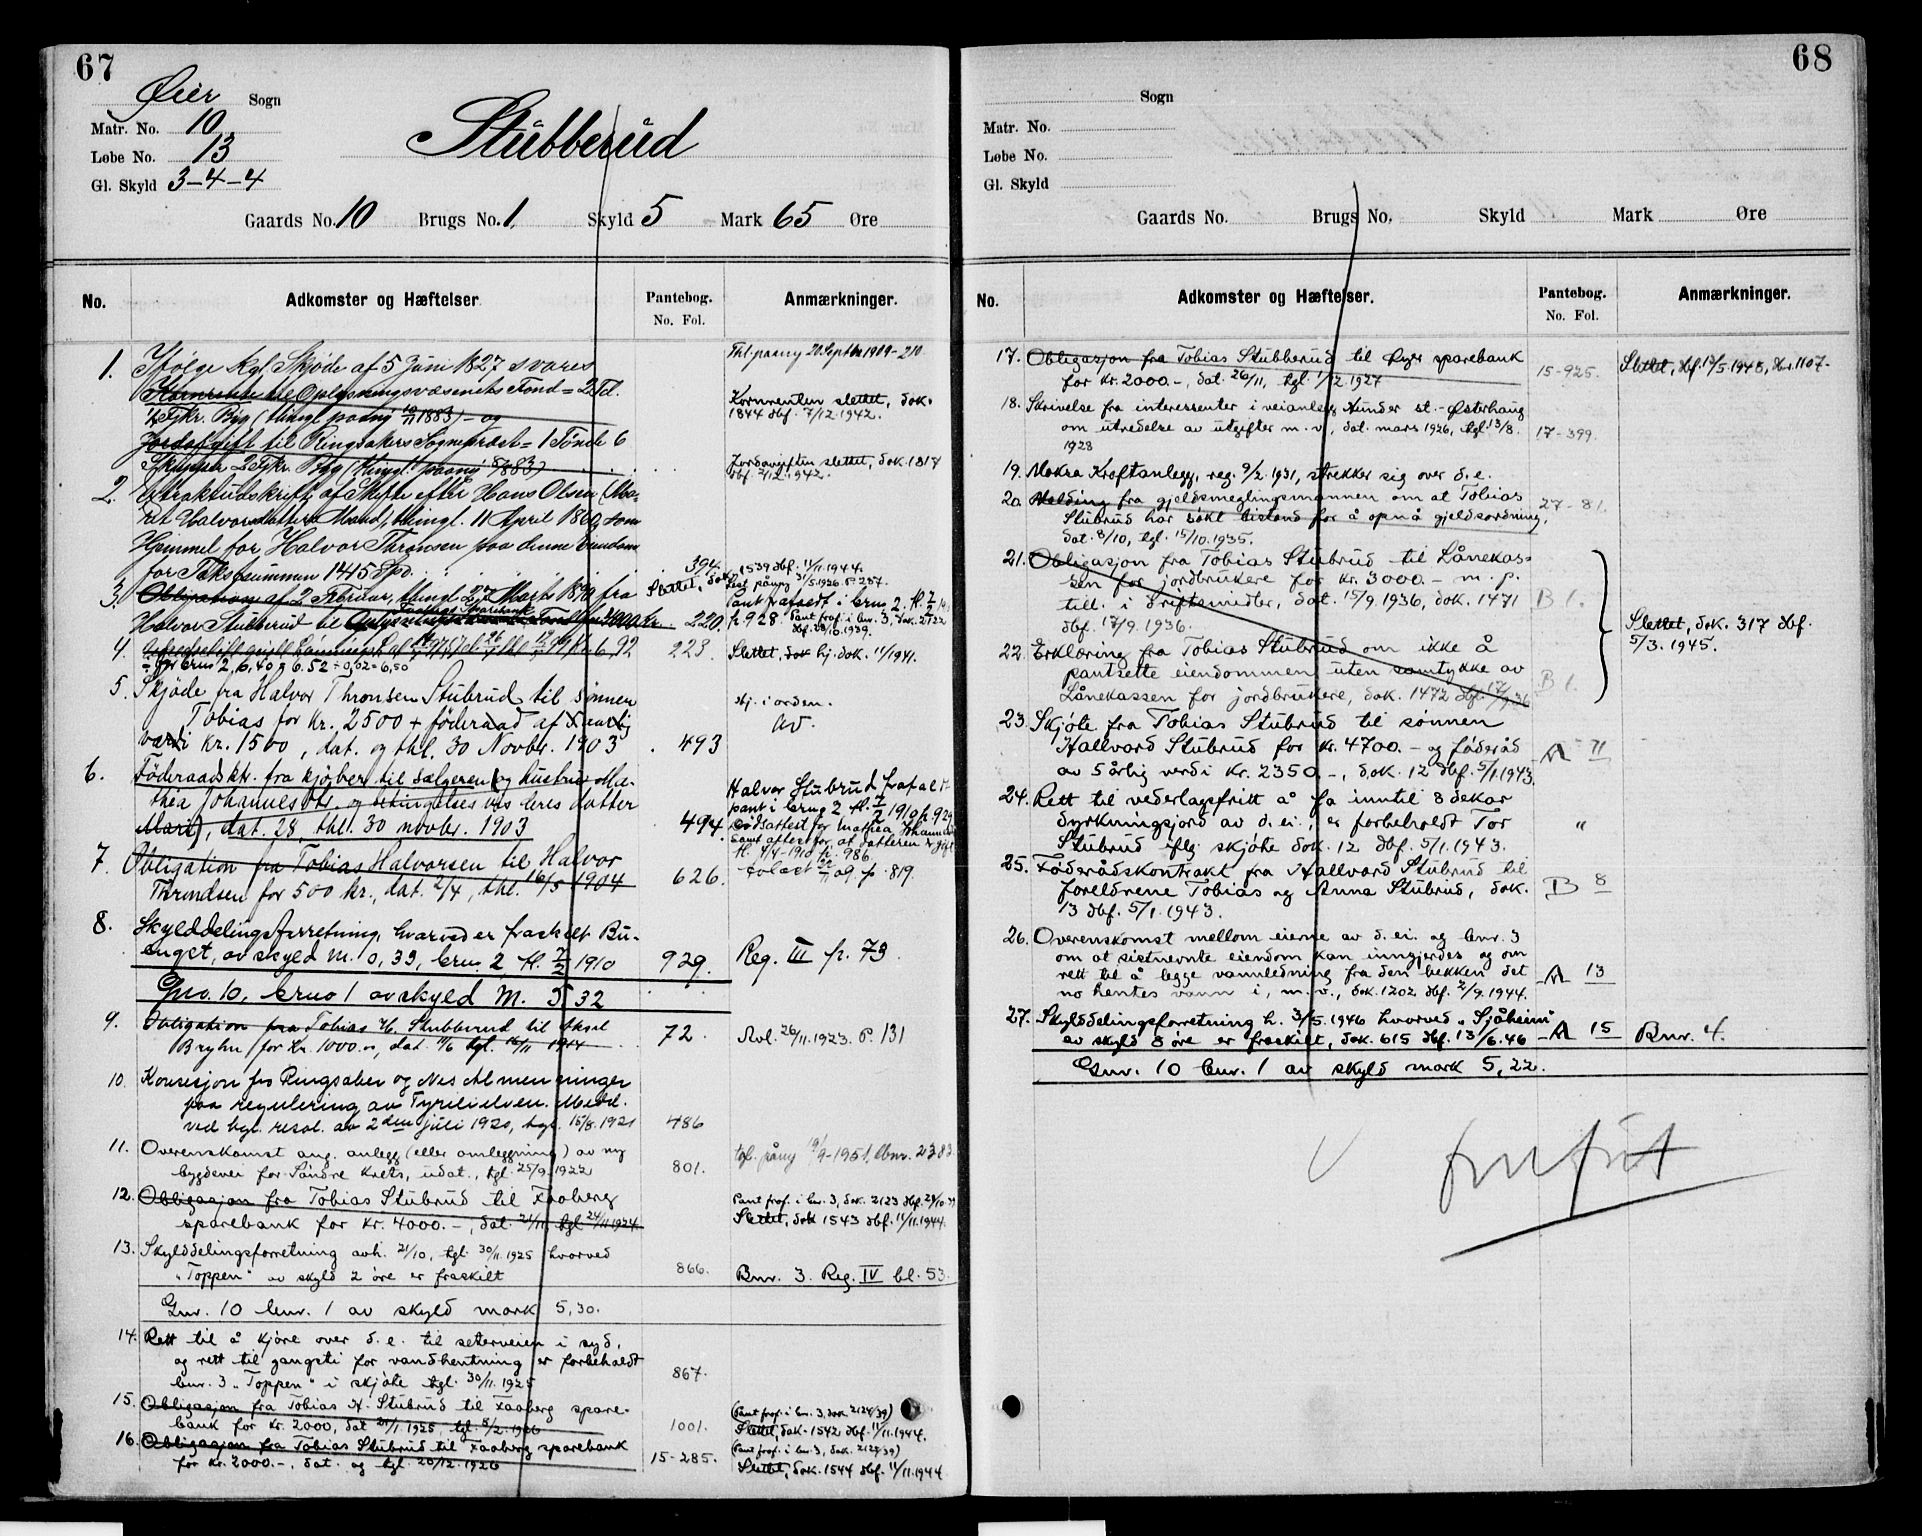 67
Øier Sogn
Matr. No. 10
Løbe No. 13
Gl. Skyld 3-4-4
Stubberud
Gaards No. 10 Brugs No. 1. Skyld 5 Mark 65 Øre
No. Adkomster og Hæftelser. Pantebog. No. Fol. Anmærkninger.
1. Ifølge kgl. Skjøde af 5 Juni 1827 svares
Thl. paany 20 Septbr 1909 - 210
Kornrente til Oplysningsvæsenets Fond = 2 Td.
Kornrenten slettet, dok.
1844 dbf. 7/12 1942.
Fjkr. Byg (thingl. paany 1883) - og
Jordafgift til Ringsakers Sognepræst = 1 Tønde 6
Skjepper 2 Fjkr. Byg (thingl. paany 1883)
Jordavgiften slettet, dok. 1817
dbf. 2/12 1942.
2. Extraktudskrift af Skifte efter Hans Olsen (Ma-
rit Halvorsdatters Mand), thingl. 11 April 1860, som
Hjemmel for Halvor Thronsen paa denne Eiendom
for Takstsummen 1415 Spd. 394.
3. Obligation af 2 Februar, thingl. 27 Marts 1890 fra
Halvor Stubberud til Faabergs Sparebank 4000 kr. 220.
Slettet, dok. 1539 dbf. 11/11 1944.
Pant frafaldt i brno 2. fl.
p. 928. Pant frof. i bnr. 3, dok. 2122
dbf. 28/10 1939.
4. 6,92 223. Slettet, dok hj. dok. 1941.
for brno 2, 6.40 6.52 ÷ 0,02 = 6,50
5. Skjøde fra Halvor Thronsen Stubrud til sønnen
Tobias for kr. 2500 + føderaad af 5 aarlig
værdi kr. 1500, dat. og thl. 30 Novbr. 1903 493
hj. i orden.
av.
6. Føderaadsktr. fra kjøber til sælgeren og hustru Ma-
thea Johannesdtr. og betingelsesvis deres datter
Mari), dat. 28, thl. 30 novbr. 1903 494.
Halvor Stubrud frafalt
pant i brug 2 fl. 7/2 1910 p. 929
Dødsattest for Mathea Johannesdtr
samt attest for at datteren er gift
fl. 4/4 1910 p. 986
7. Obligation fra Tobias Halvorsen til Halvor
Throndsen for 500 kr., dat. 2/4, thl. 16/5 1904 626.
Avlæst 09 p. 819.
8. Skylddelingsforretning, hvorved er fraskilt Bu-
enget, av skyld M. 0,33, brno 2, fl. 7/2 1910 929.
Reg. III p. 73.
Gno. 10, brno 1 av skyld M. 5,32
9. Obligation fra Tobias H. Stubberud til Aksel
Bryhn for kr. 1000.-, dat. 11/6 tgl. 16/11 1914 72.
Avl. 26/11 1923. P. 131
10. Konsesjon for Ringsaker og Nes Almenninger
paa regulering av Tyrilielven. Medd.
ved kgl. resol. av 2den juli 1920, tgl. 15/8. 1921 486
11. Overenskomst ang. anlegg (eller omlegning) av ny
bygdevei for Søndre Krets, udat., tgl. 25/9. 1922 801.
tgl. påny 19/9-1951, dbnr. 2383
12. Obligasjon fra Tobias Stubrud til Faaberg
sparebank for kr. 4000.-, dat. 21/11, tgl. 24/11 1924
Pant frof. i bnr. 3, dok. 2123 dbf. 28/10.39
Slettet, dok 1543 dbf. 11/11.1944.
13. Skylddelingsforretning avh. 21/10, tgl. 30/11. 1925 hvorved
"Toppen" av skyld 2 øre er fraskilt 866.
Bnr. 3. Reg. IV bl. 53.
Gnr. 10 bnr. 1 av skyld mark 5,30.
14. Rett til å kjøre over d. e. til seterveien i syd,
og rett til gangsti for vandhentning er forbeholdt
bnr. 3 "Toppen" i skjøte tgl. 30/11. 1925 867.
15. Obligasjon fra Tobias H. Stubrud til Faaberg spare-
bank for kr. 2000, dat 21/1 1925, tgl. 5/2. 1926 1001.
(Pant frof. i bnr. 3, dok 2124/39)
Slettet, dok. 1542 dbf. 11/11.1944.
16. Obligasjon fra Tobias Stubrud til Faaberg sparebank
for kr. 2000.-, dat. og tgl. 20/12. 1926 15-285.
(Pant frof. i bnr. 3, dok. 2125/39)
Slettet, dok. 1544 dbf. 11/11.1944
68
Sogn
Matr. No.
Løbe No.
Gl. Skyld
Gaards No. Brugs No. Skyld Mark Øre
No. Adkomster og Hæftelser. Pantebog. No. Fol. Anmærkninger.
17. Obligasjon fra Tobias Stubberud til Øyer sparebank
for kr. 2000.-, dat. 26/11, tgl. 1/12. 1927 15-925.
Slettet, dbf. 12/5. 1948, dbr. 1107.
18. Skrivelse fra interessenter i veianlegg Hunder st. - Østerhaug
om utredelse av utgifter m. v., dat. mars 1926, tgl. 13/8.
1928 17-399.
19. Moksa Kraftanlegg, reg. 9/2. 1931, strekker sig over d. e.
20. Melding fra gjeldsmeglingsmannen om at Tobias
Stubrud har søkt bistand for å opnå gjeldsordning,
dat. 8/10, tgl. 15/10. 1935. 27-81.
21. Obligasjon fra Tobias Stubrud til Lånekas-
sen for jordbrukere for kr. 3000.- m. p.
till. i driftsmidler, dat. 15/9. 1936, dok. 1471
dbf. 17/9. 1936. B 1.
Slettet, dok. 317 dbf.
5/3. 1945.
22. Erklæring fra Tobias Stubrud om ikke å
pantsette eiendommen uten samtykke av
Lånekassen for jordbrukere, dok. 1472 dbf. 17/9 36 B 1.
23. Skjøte fra Tobias Stubrud til sønnen
Hallvard Stubrud for kr. 4700.- og føderåd
av 5 årlig verdi kr. 2350.-, dok. 12 dbf. 5/1.1943. A 71
24. Rett til vederlagsfritt å få inntil 8 dekar
dyrkningsjord av d. ei., er forbeholdt Tor
Stubrud iflg. skjøte dok. 12 dbf. 5/1.1943. "
25. Føderådskontrakt fra Hallvard Stubrud til
foreldrene Tobias og Anna Stubrud, dok.
13 dbf. 5/1.1943. B 8
26. Overenskomst mellom eierne av d. ei. og bnr. 3
om at sistnevnte eiendom kan inngjerdes og om
rett til å legge vannledning fra den bekken det
no hentes vann i, m. v., dok. 1202 dbf. 2/9. 1944. A 13
27. Skylddelingsforretning h. 3/5. 1946 hvorved "Sjåheim"
av skyld 8 øre er fraskilt, dok. 615 dbf. 13/6.46 A 15 Bnr. 4.
Gnr. 10 bnr. 1 av skyld mark 5,22.